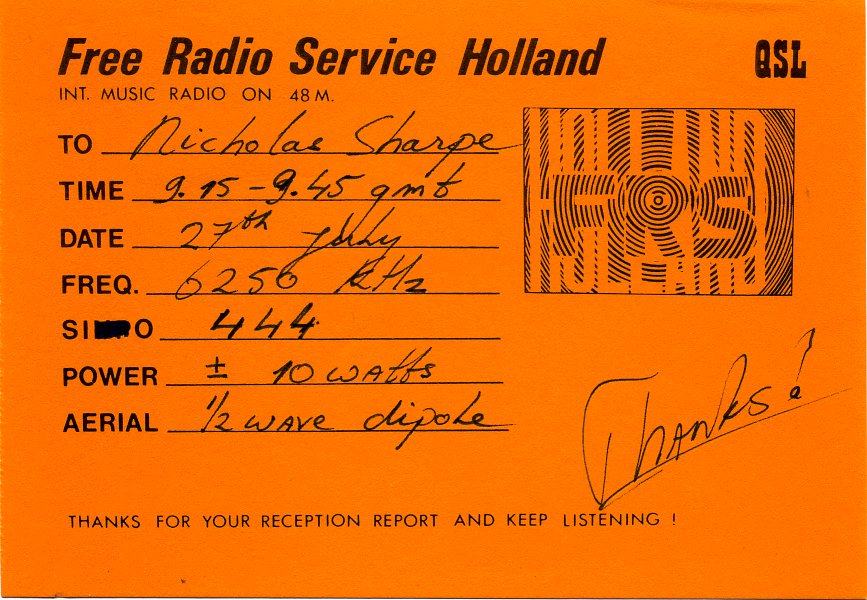 Free Radio Service Holland QSL
INT. MUSIC RADIO ON 48 M.
TO Nicholas Sharpe
TIME 9.15 - 9.45 gmt
FRS
DATE 27th july
FREQ. 6250 kHz
SI O 444
POWER ± 10 watts
AERIAL 1/2 wave dipole
THANKS!
THANKS FOR YOUR RECEPTION REPORT AND KEEP LISTENING !